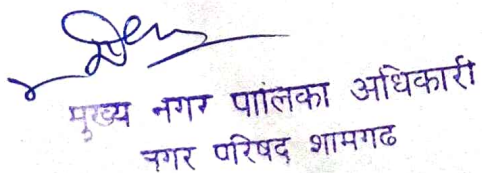 मुख्य नगर पालिका अधिकारी
नगर परिषद शामगढ